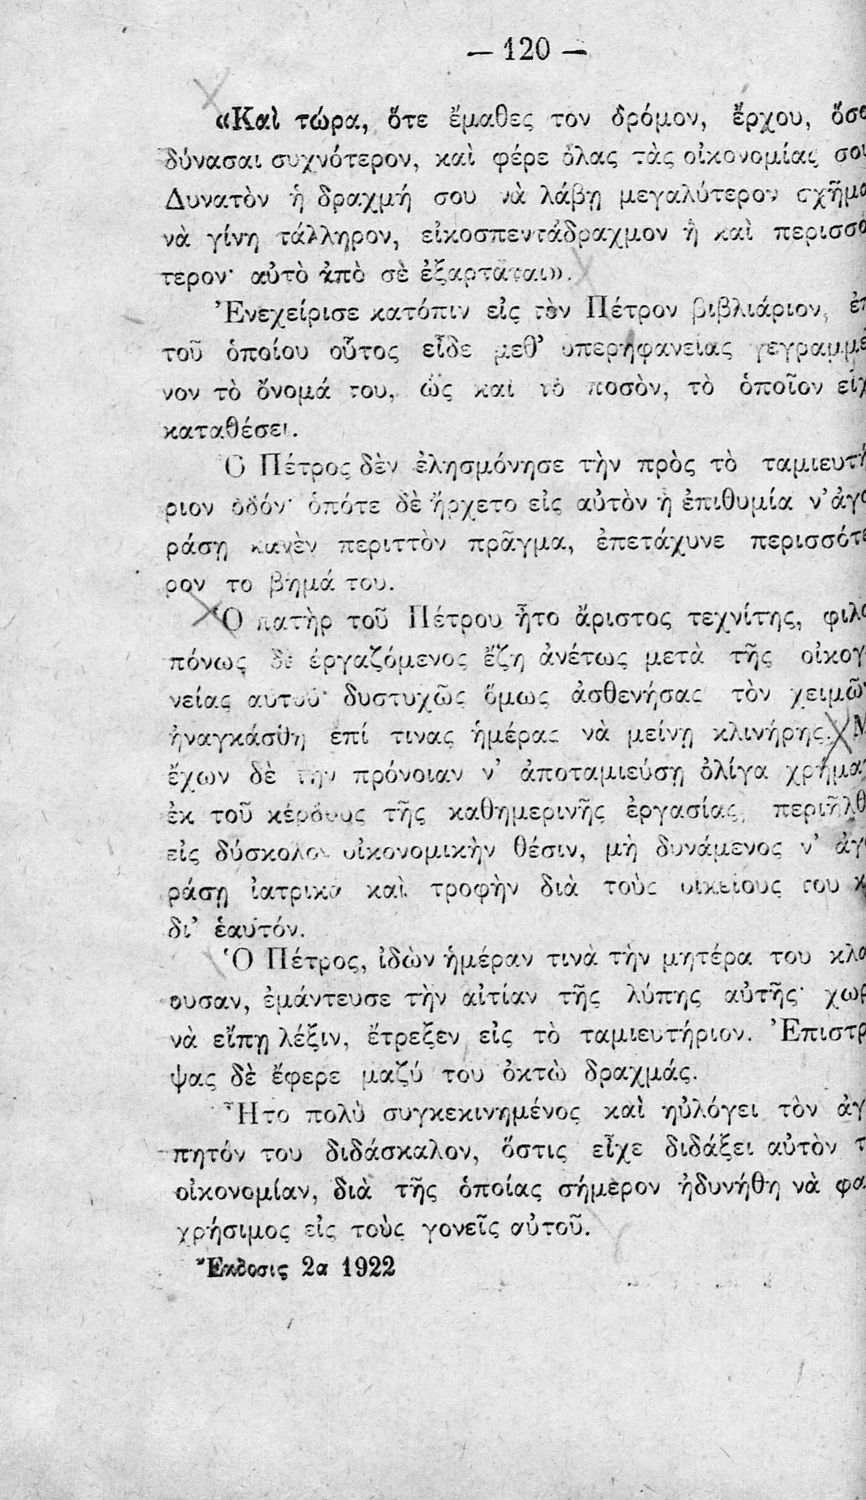 — 120 —
«Καὶ τώρα, ὅτε ἔμαθες τὸν δρόμον, ἔρχου, ὅσο
δύνασαι συχνότερον, καὶ φέρε ὅλας τὰς οἰκονομίας σου
Δυνατὸν ἡ δραχμή σου νὰ λάβῃ μεγαλύτερον σχῆμα
νὰ γίνῃ τάλληρον, εἰκοσπεντάδραχμον ἢ καὶ περισσο
τερον· αὐτὸ ἀπὸ σὲ ἐξαρτᾶται».
Ἐνεχείρισε κατόπιν εἰς τὸν Πέτρον βιβλιάριον, ἐπ
τοῦ ὁποίου οὗτος εἶδε μεθ’ υπερηφανείας γεγραμμέ
νον τὸ ὄνομά του, ὡς καὶ τὸ ποσὸν, τὸ ὁποῖον εἰχ
καταθέσει.
Ὁ Πέτρος δὲν ἐλησμόνησε τὴν πρὸς τὸ ταμιευτή
ριον ὁδόν· ὁπότε δὲ ἤρχετο εἰς αὐτὸν ἡ ἐπιθυμία ν’ ἀγο
ράσῃ κανὲν περιττὸν πρᾶγμα, ἐπετάχυνε περισσότε
ρον το βῆμά του.
Ὁ πατὴρ τοῦ Πέτρου ἦτο ἄριστος τεχνίτης, φιλο
πόνως δὲ ἐργαζόμενος ἔζη ἀνέτως μετὰ τῆς οἰκογ
νείας αὐτοῦ· δυστυχῶς ὅμως ἀσθενήσας τὸν χειμῶν
ἠναγκάσθη ἐπί τινας ἡμέρας νὰ μείνῃ κλινήρης. Μ
ἔχων δὲ τὴν πρόνοιαν ν’ ἀποταμιεύσῃ ὀλίγα χρήματ
ἐκ τοῦ κέρδους τῆς καθημερινῆς ἐργασίας, περιῆλθ
εἰς δύσκολον οἰκονομικὴν θέσιν, μὴ δυνάμενος ν’ ἀγο
ράσῃ ἰατρικὰ καὶ τροφὴν διὰ τοὺς οἰκείους του κ
δι’ ἑαυτόν.
Ὁ Πέτρος, ἰδὼν ἡμέραν τινὰ τὴν μητέρα του κλα
ουσαν, ἐμάντευσε τὴν αἰτίαν τῆς λύπης αὐτῆς· χωρ
νὰ εἴπῃ λέξιν, ἔτρεξεν εἰς τὸ ταμιευτήριον. Ἐπιστρ
ψας δὲ ἔφερε μαζύ του ὀκτὼ δραχμάς.
Ἦτο πολὺ συγκεκινημένος καὶ ηὐλόγει τὸν ἀγ
πητόν του διδάσκαλον, ὅστις εἶχε διδάξει αὐτὸν τ
οἰκονομίαν, διὰ τῆς ὁποίας σήμερον ἠδυνήθη νὰ φα
χρήσιμος εἰς τοὺς γονεῖς αὐτοῦ.
Ἔκδοσις 2α 1922